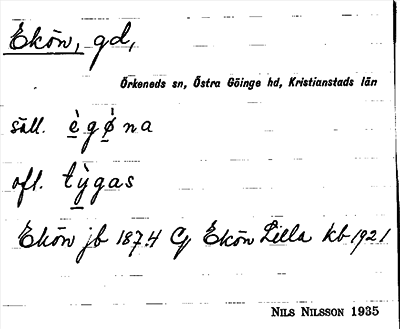 Ekön, gd,
Örkeneds sn, Östra Göinge hd, Kristianstads län
säll. è̠gø̠̀na
oft. tỳ̠gas
Ekön jb 1874 Ekön Lilla kb 1921
NILS NILSSON 1935